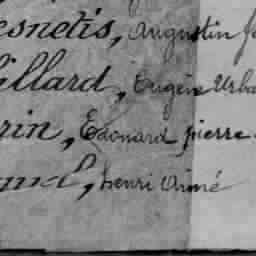 esnetis, Augustin
illard, Eugène Urba
rin, Edouard pierre
Henri Aimé